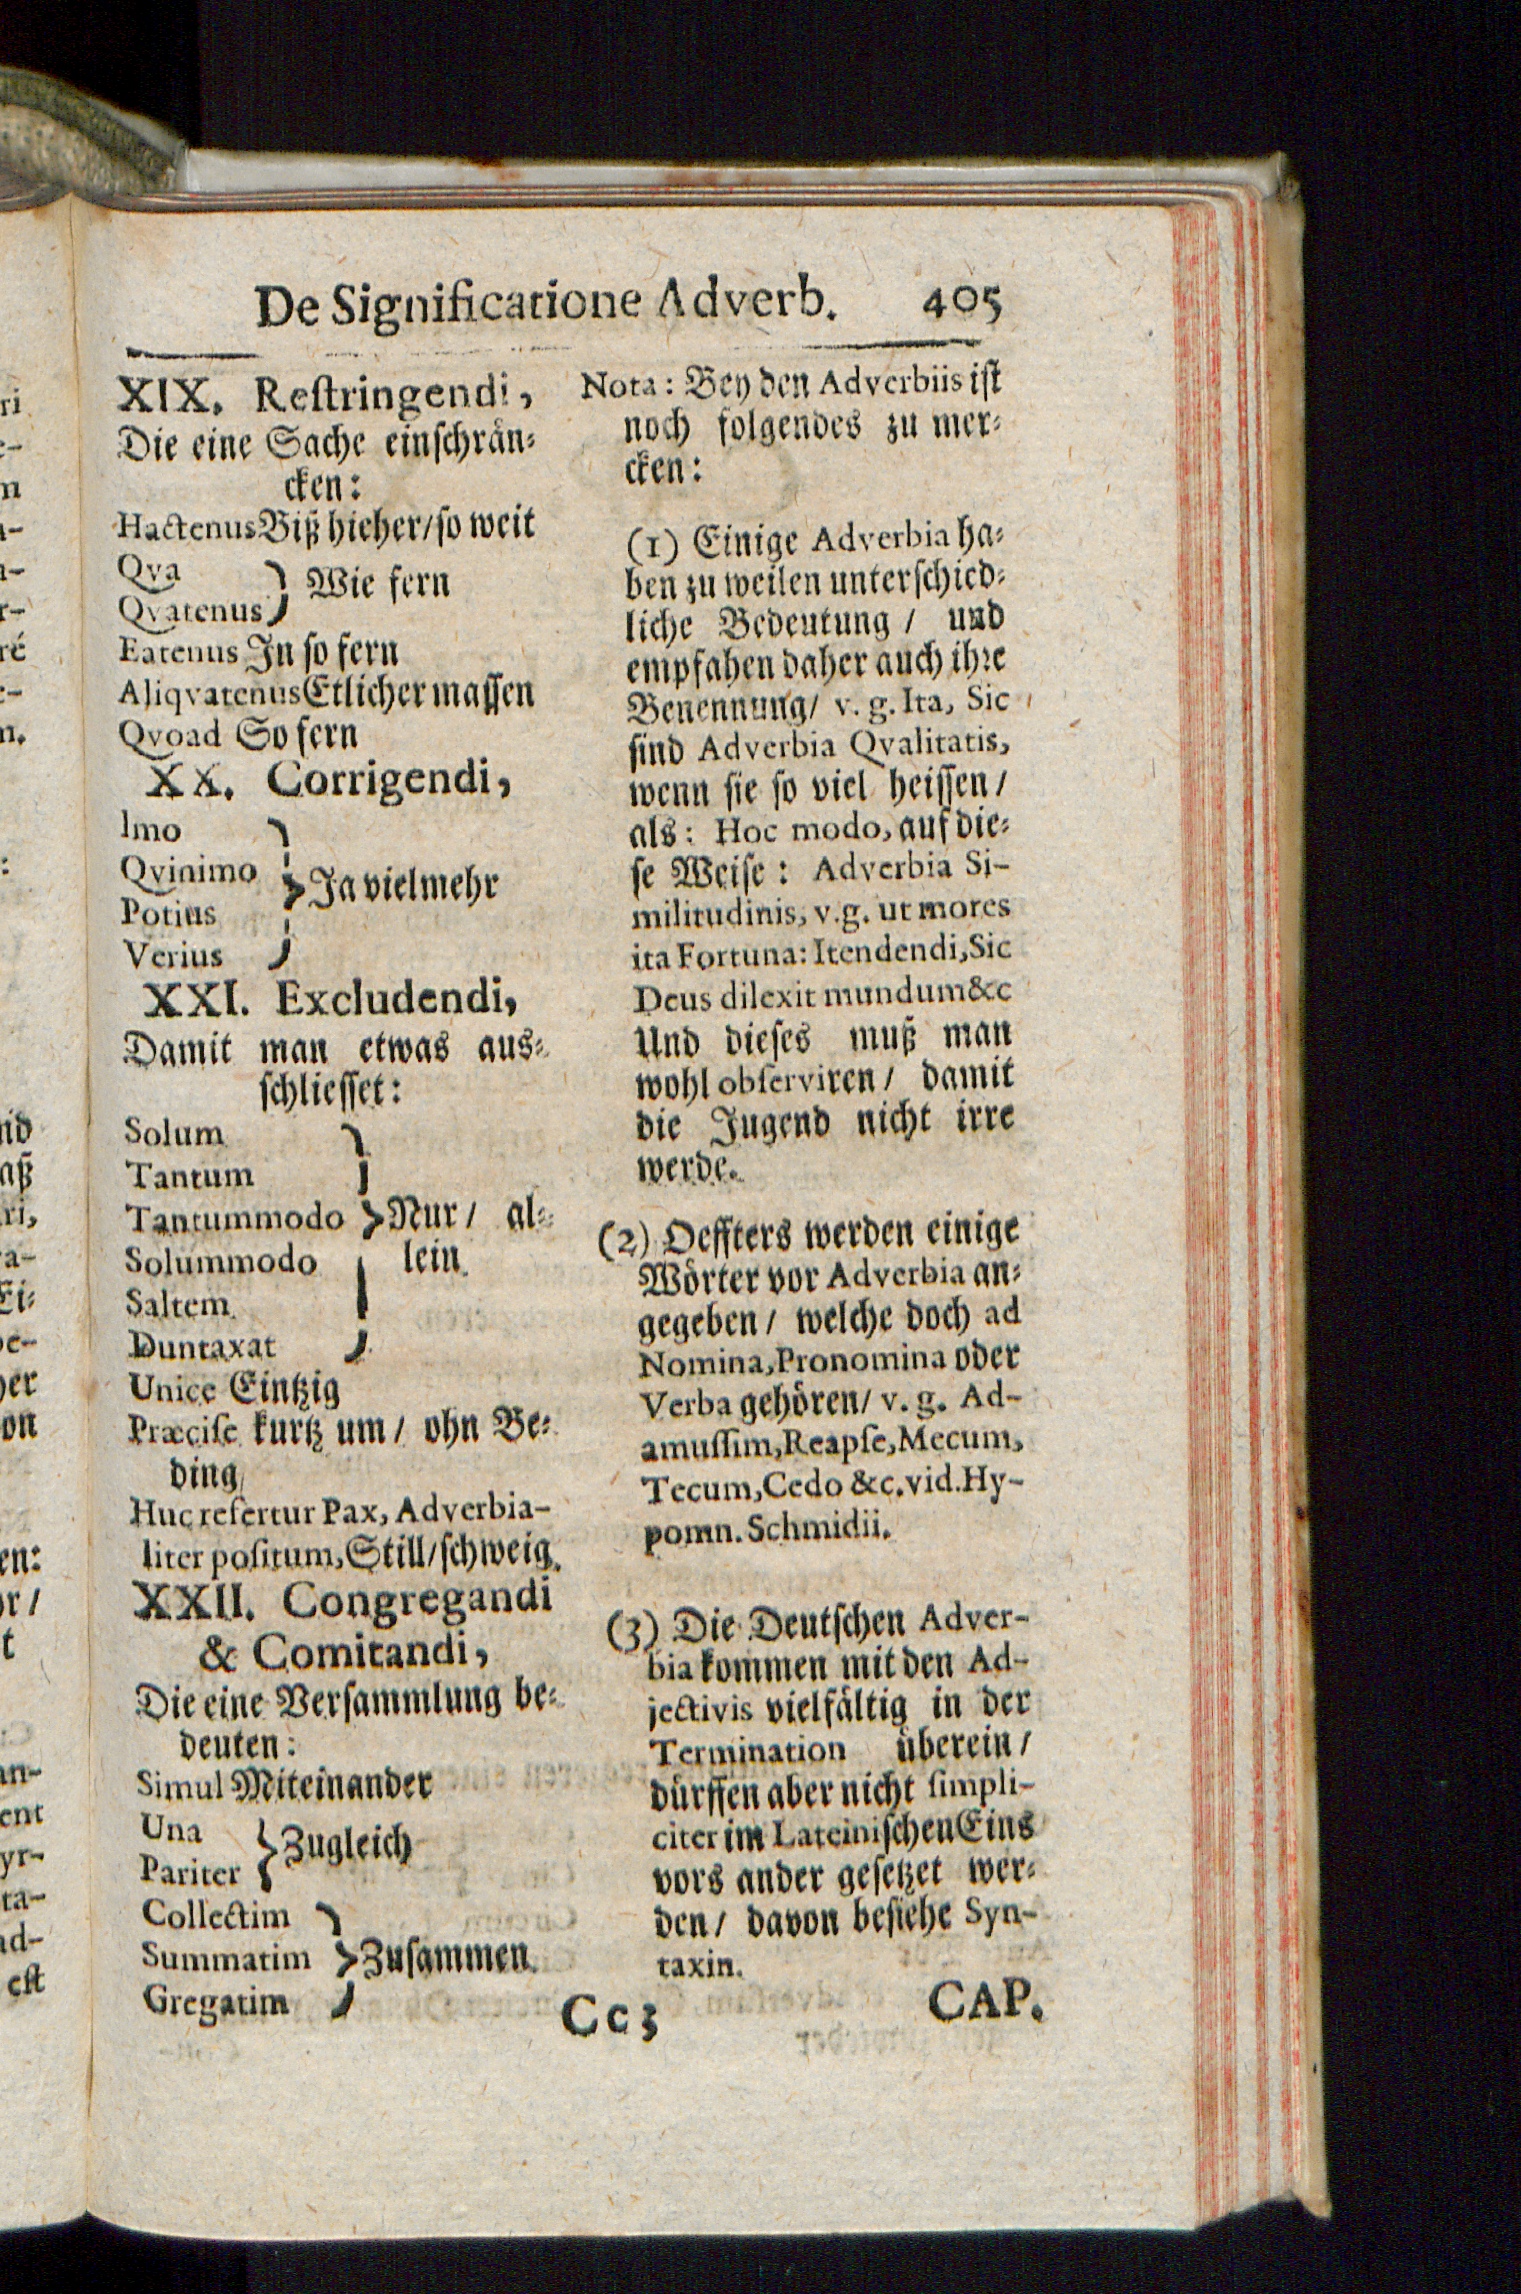 De Significatione Adverb. 405
XIX. Reſtringendi,
Die eine Sache einſchrån⸗
cken:
Hactenus Biß hieher/ſo weit
Qva
Qvatenus } Wie fern
Eatenus Jn ſo fern
Aliqvatenus Etlicher maſſen
Qvoad So fern
XX. Corrigendi,
Imo
Qvinimo
Potius } Ja vielmehr
Verius
XXI. Excludendi,
Damit man etwas aus⸗
ſchlieſſet:
Solum
Tantum
Tantummodo } Nur/ al⸗
Solummodo lein
Saltem
Duntaxat
Unice Eintzig
Præciſe kurtz um/ ohn Be⸗
ding
Huc refertur Pax, Adverbia-
liter poſitum, Still/ſchweig.
XXII. Congregandi
& Comitandi,
Die eine Verſammlung be⸗
deuten:
Simul Miteinander
Una
Pariter } Zugleich
Collectim
Summatim } Zuſammen.
Gregatim
Nota: Bey den Adverbiis iſt
noch folgendes zu mer⸗
cken:
(1) Einige Adverbia ha⸗
ben zu weilen unterſchied⸗
liche Bedeutung / und
empfahen daher auch ihre
Benennung/ v. g. Ita, Sic
ſind Adverbia Qvalitatis,
wenn ſie ſo viel heiſſen/
als: Hoc modo, auf die⸗
ſe Weiſe: Adverbia Si-
militudinis, v.g. ut mores
ita Fortuna: Itendendi, Sic
Deus dilexit mundum &c
Und dieſes muß man
wohl obſerviren/ damit
die Jugend nicht irre
werde.
(2) Oeffters werden einige
Wörter vor Adverbia an⸗
gegeben/ welche doch ad
Nomina, Pronomina oder
Verba gehören/ v. g. Ad-
amuſſim, Reapſe, Mecum,
Tecum, Cedo &c. vid. Hy-
pomn. Schmidii.
(3) Die Deutſchen Adver-
bia kommen mit den Ad-
jectivis vielfältig in der
Termination überein/
dürffen aber nicht ſimpli-
citer im Lateiniſchen Eins
vors ander geſetzet wer⸗
den/ davon beſiehe Syn-
taxin.
Cc3 CAP.